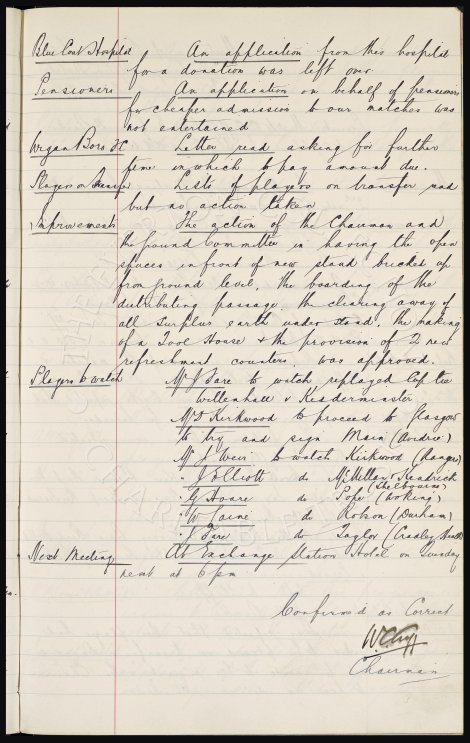 Blue Coat Hospital An application from this hospital
for a donation was left over
Pensioners An application on behalf of pensioners
for cheaper admission to our matches was
not entertained
Wigan Boro FC Letter read asking for further
time in which to pay amount due.
Players on Transfer Lists of players on transfer read
but no action taken
Improvements The action of the Chairman and
the ground Committee in having the open
spaces in front of new stand bricked up
from ground level, the boarding of the
distributing passage, the clearing away of
all surplus earth under stand, the making
of a Tool House & the provision of 2 new
refreshment counters, was approved.
Players to watch Mr J Sare to watch replayed Cup tie
Willenhall v Kidderminster
Mr D Kirkwood to proceed to Glasgow
to try and sign Main (Airdrie)
Mr J Weir to watch Kirkwood (Rangers)
" J Elliott do McMillan & Kendrick
(Shelbourne)
" G Hoare do Pope (Woking)
" W Caine do Robson (Durham)
" J Sare do Taylor (Cradley Heath)
Next Meeting At Exchange Station Hotel on Tuesday
next at 6 pm
Confirmed as Correct
W C Cuff
Chairman